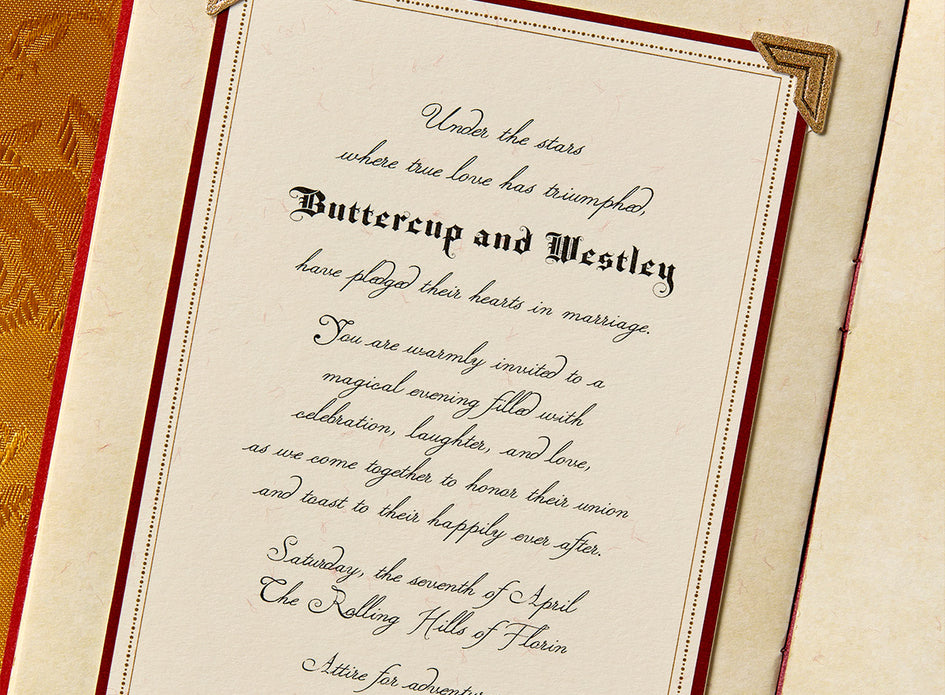 Under the stars
where true love has triumphed,
Buttercup and Westley
have pledged their hearts in marriage.
You are warmly invited to a
magical evening filled with
celebration, laughter, and love,
as we come together to honor their union
and toast to their happily ever after.
Saturday, the seventh of April
The Rolling Hills of Florin
Attire for